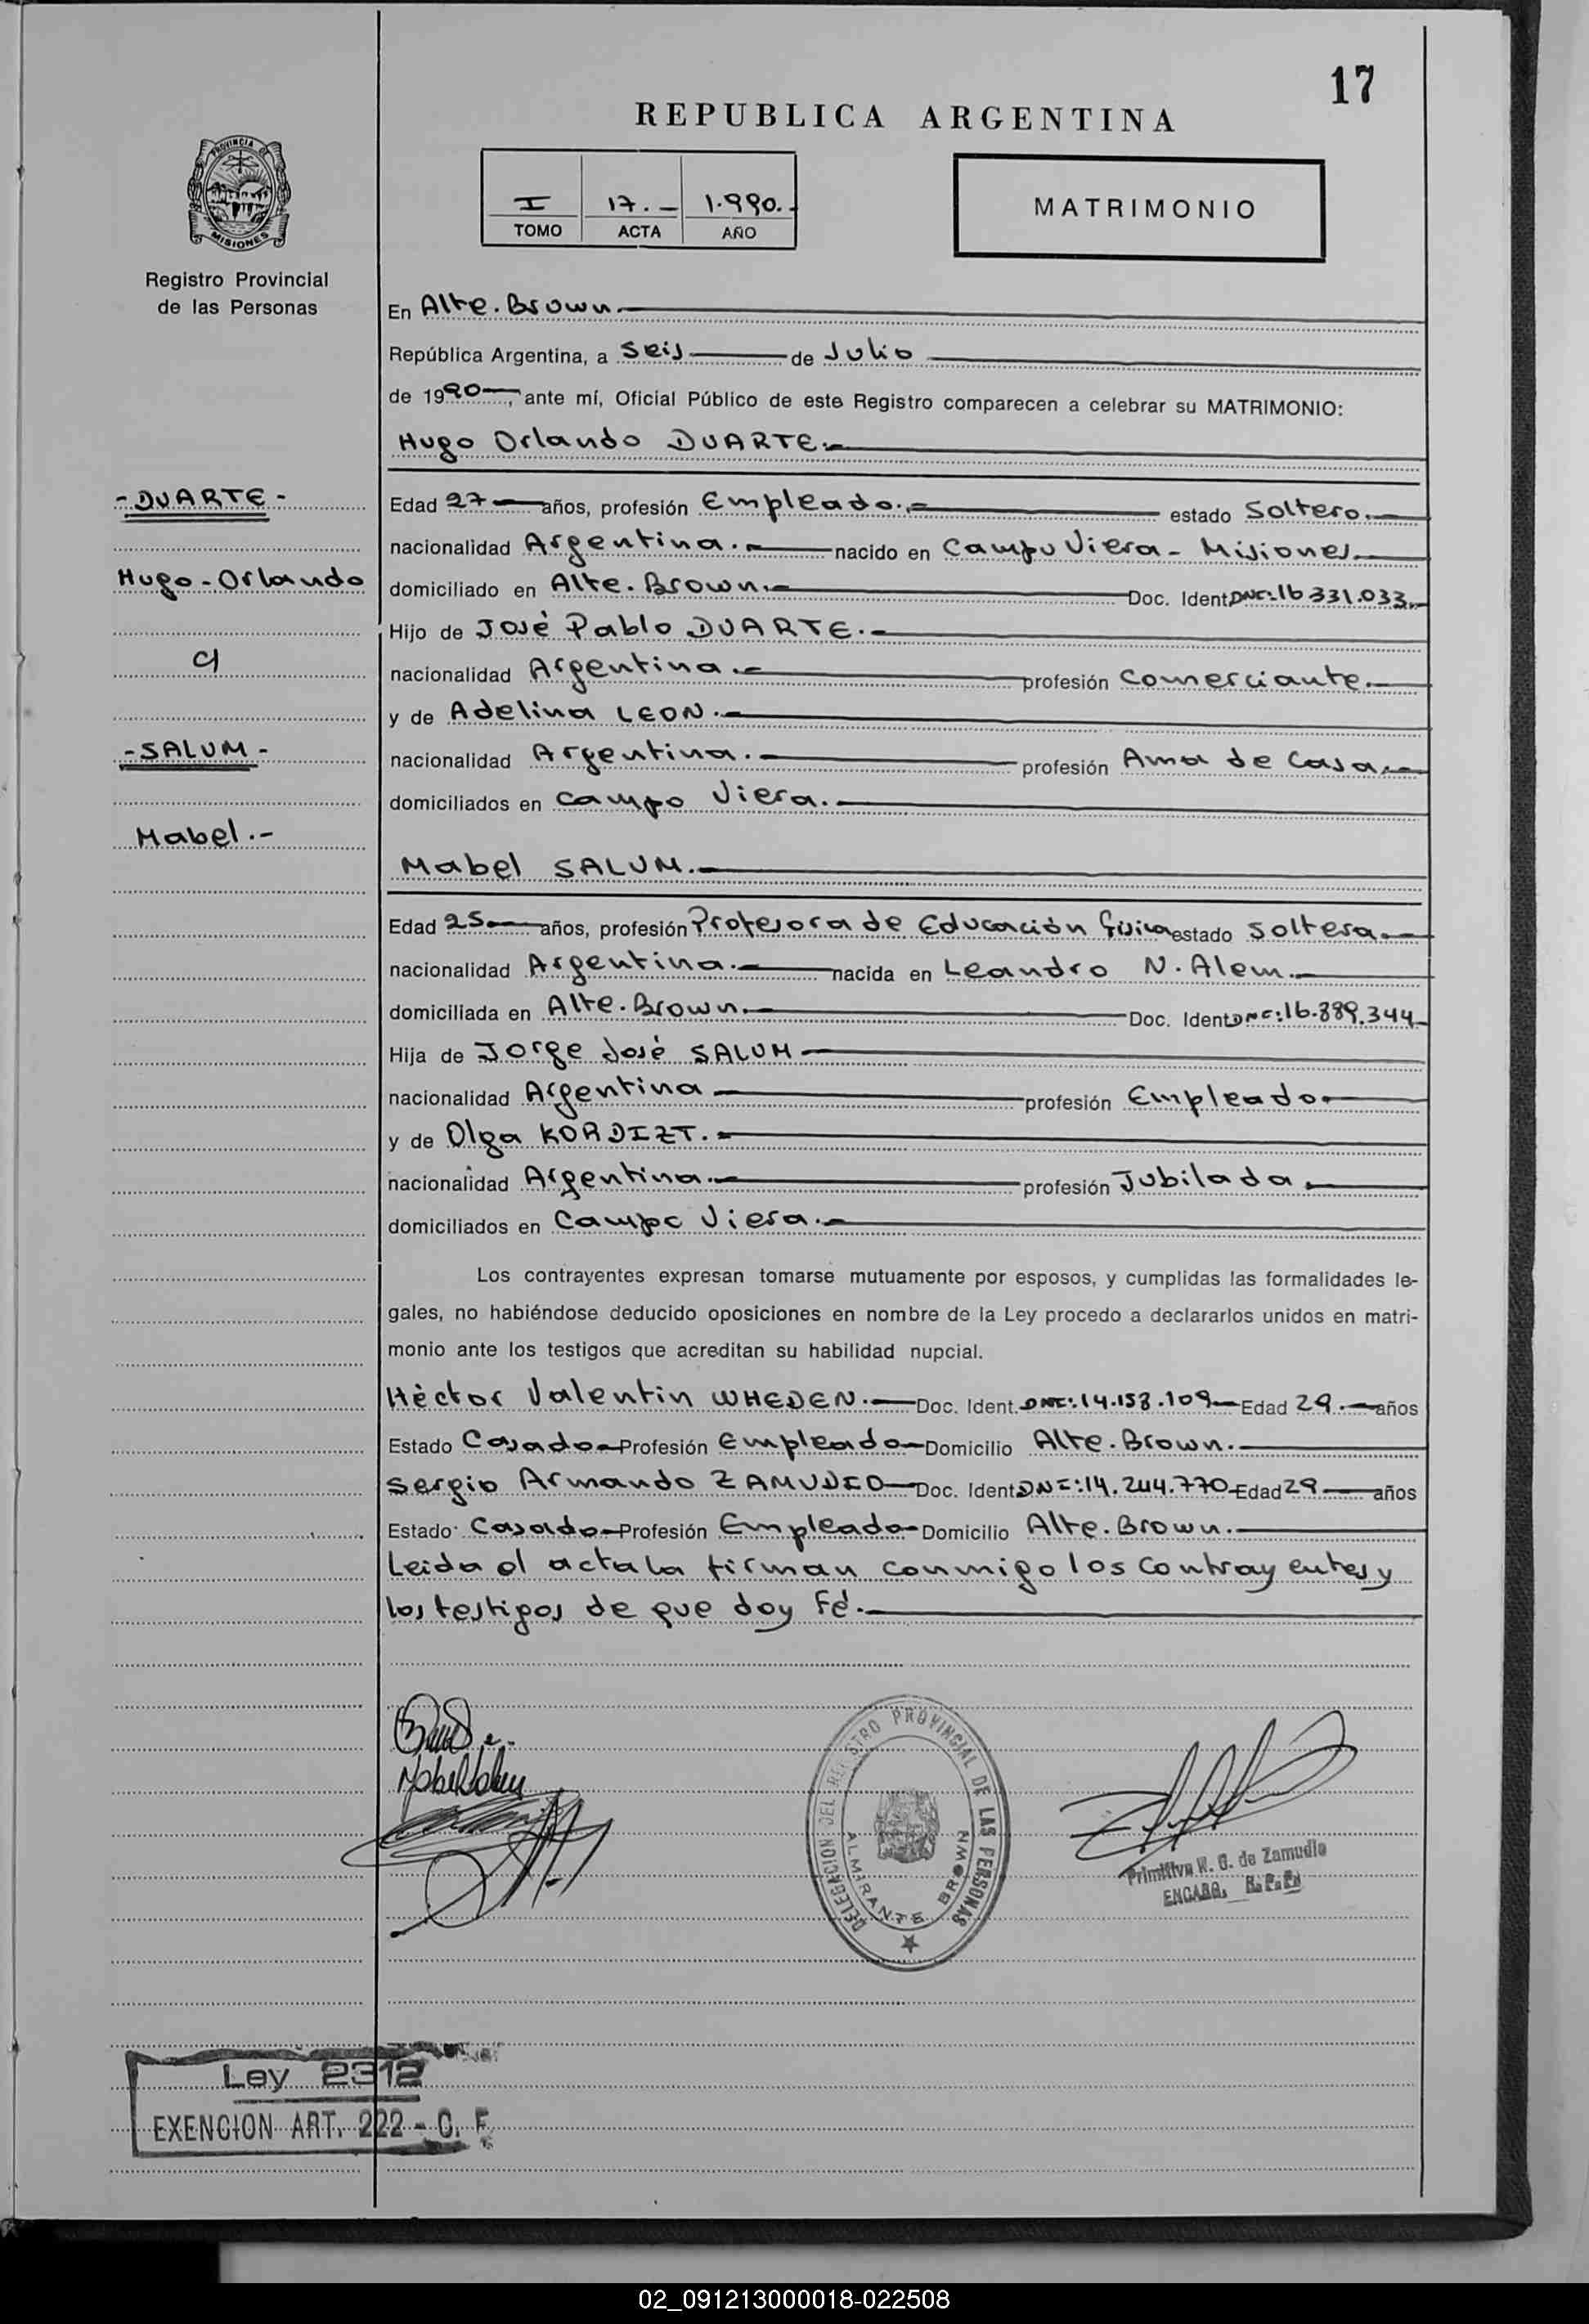 17
REPUBLICA ARGENTINA
I 17.- 1.990.-
TOMO ACTA AÑO
MATRIMONIO
PROVINCIA DE
MISIONES
Registro Provincial
de las Personas
En Alte. Brown.
República Argentina, a Seis de Julio
de 1990, ante mí, Oficial Público de este Registro comparecen a celebrar su MATRIMONIO:
Hugo Orlando DUARTE.-
- DUARTE -
Hugo - Orlando
C/
- SALUM -
Mabel.-
Edad 27 años, profesión Empleado.- estado Soltero.
nacionalidad Argentina.- nacido en Campo Viera - Misiones
domiciliado en Alte. Brown.- Doc. Ident. DNI: 16 331.033
Hijo de José Pablo DUARTE.-
nacionalidad Argentina.- profesión Comerciante.
y de Adelina LEON.-
nacionalidad Argentina.- profesión Ama de Casa.-
domiciliados en Campo Viera.-
Mabel SALUM.-
Edad 25 años, profesión Profesora de Educación Física estado Soltera.-
nacionalidad Argentina.- nacida en Leandro N. Alem.
domiciliada en Alte. Brown.- Doc. Ident. DNI: 16.889.344
Hija de Jorge José SALUM
nacionalidad Argentina profesión Empleado.
y de Olga KORDIZT.-
nacionalidad Argentina.- profesión Jubilada.
domiciliados en Campo Viera.-
Los contrayentes expresan tomarse mutuamente por esposos, y cumplidas las formalidades le-
gales, no habiéndose deducido oposiciones en nombre de la Ley procedo a declararlos unidos en matri-
monio ante los testigos que acreditan su habilidad nupcial.
Héctor Valentin WHEDEN.- Doc. Ident. DNI: 14.158.109 Edad 29.- años
Estado Casado Profesión Empleado Domicilio Alte. Brown.-
Sergio Armando ZAMUDIO Doc. Ident. DNI: 14.244.770 Edad 29 años
Estado Casado Profesión Empleado Domicilio Alte. Brown.-
Leida el acta la firman conmigo los contrayentes y
los testigos de que doy Fé.-
DELEGACION DEL REGISTRO PROVINCIAL DE LAS PERSONAS
ALMIRANTE BROWN
Primitiva R. G. de Zamudio
ENCARG. R. P. P.
Ley 2312
EXENCION ART. 222 - C. F.
02_091213000018-022508